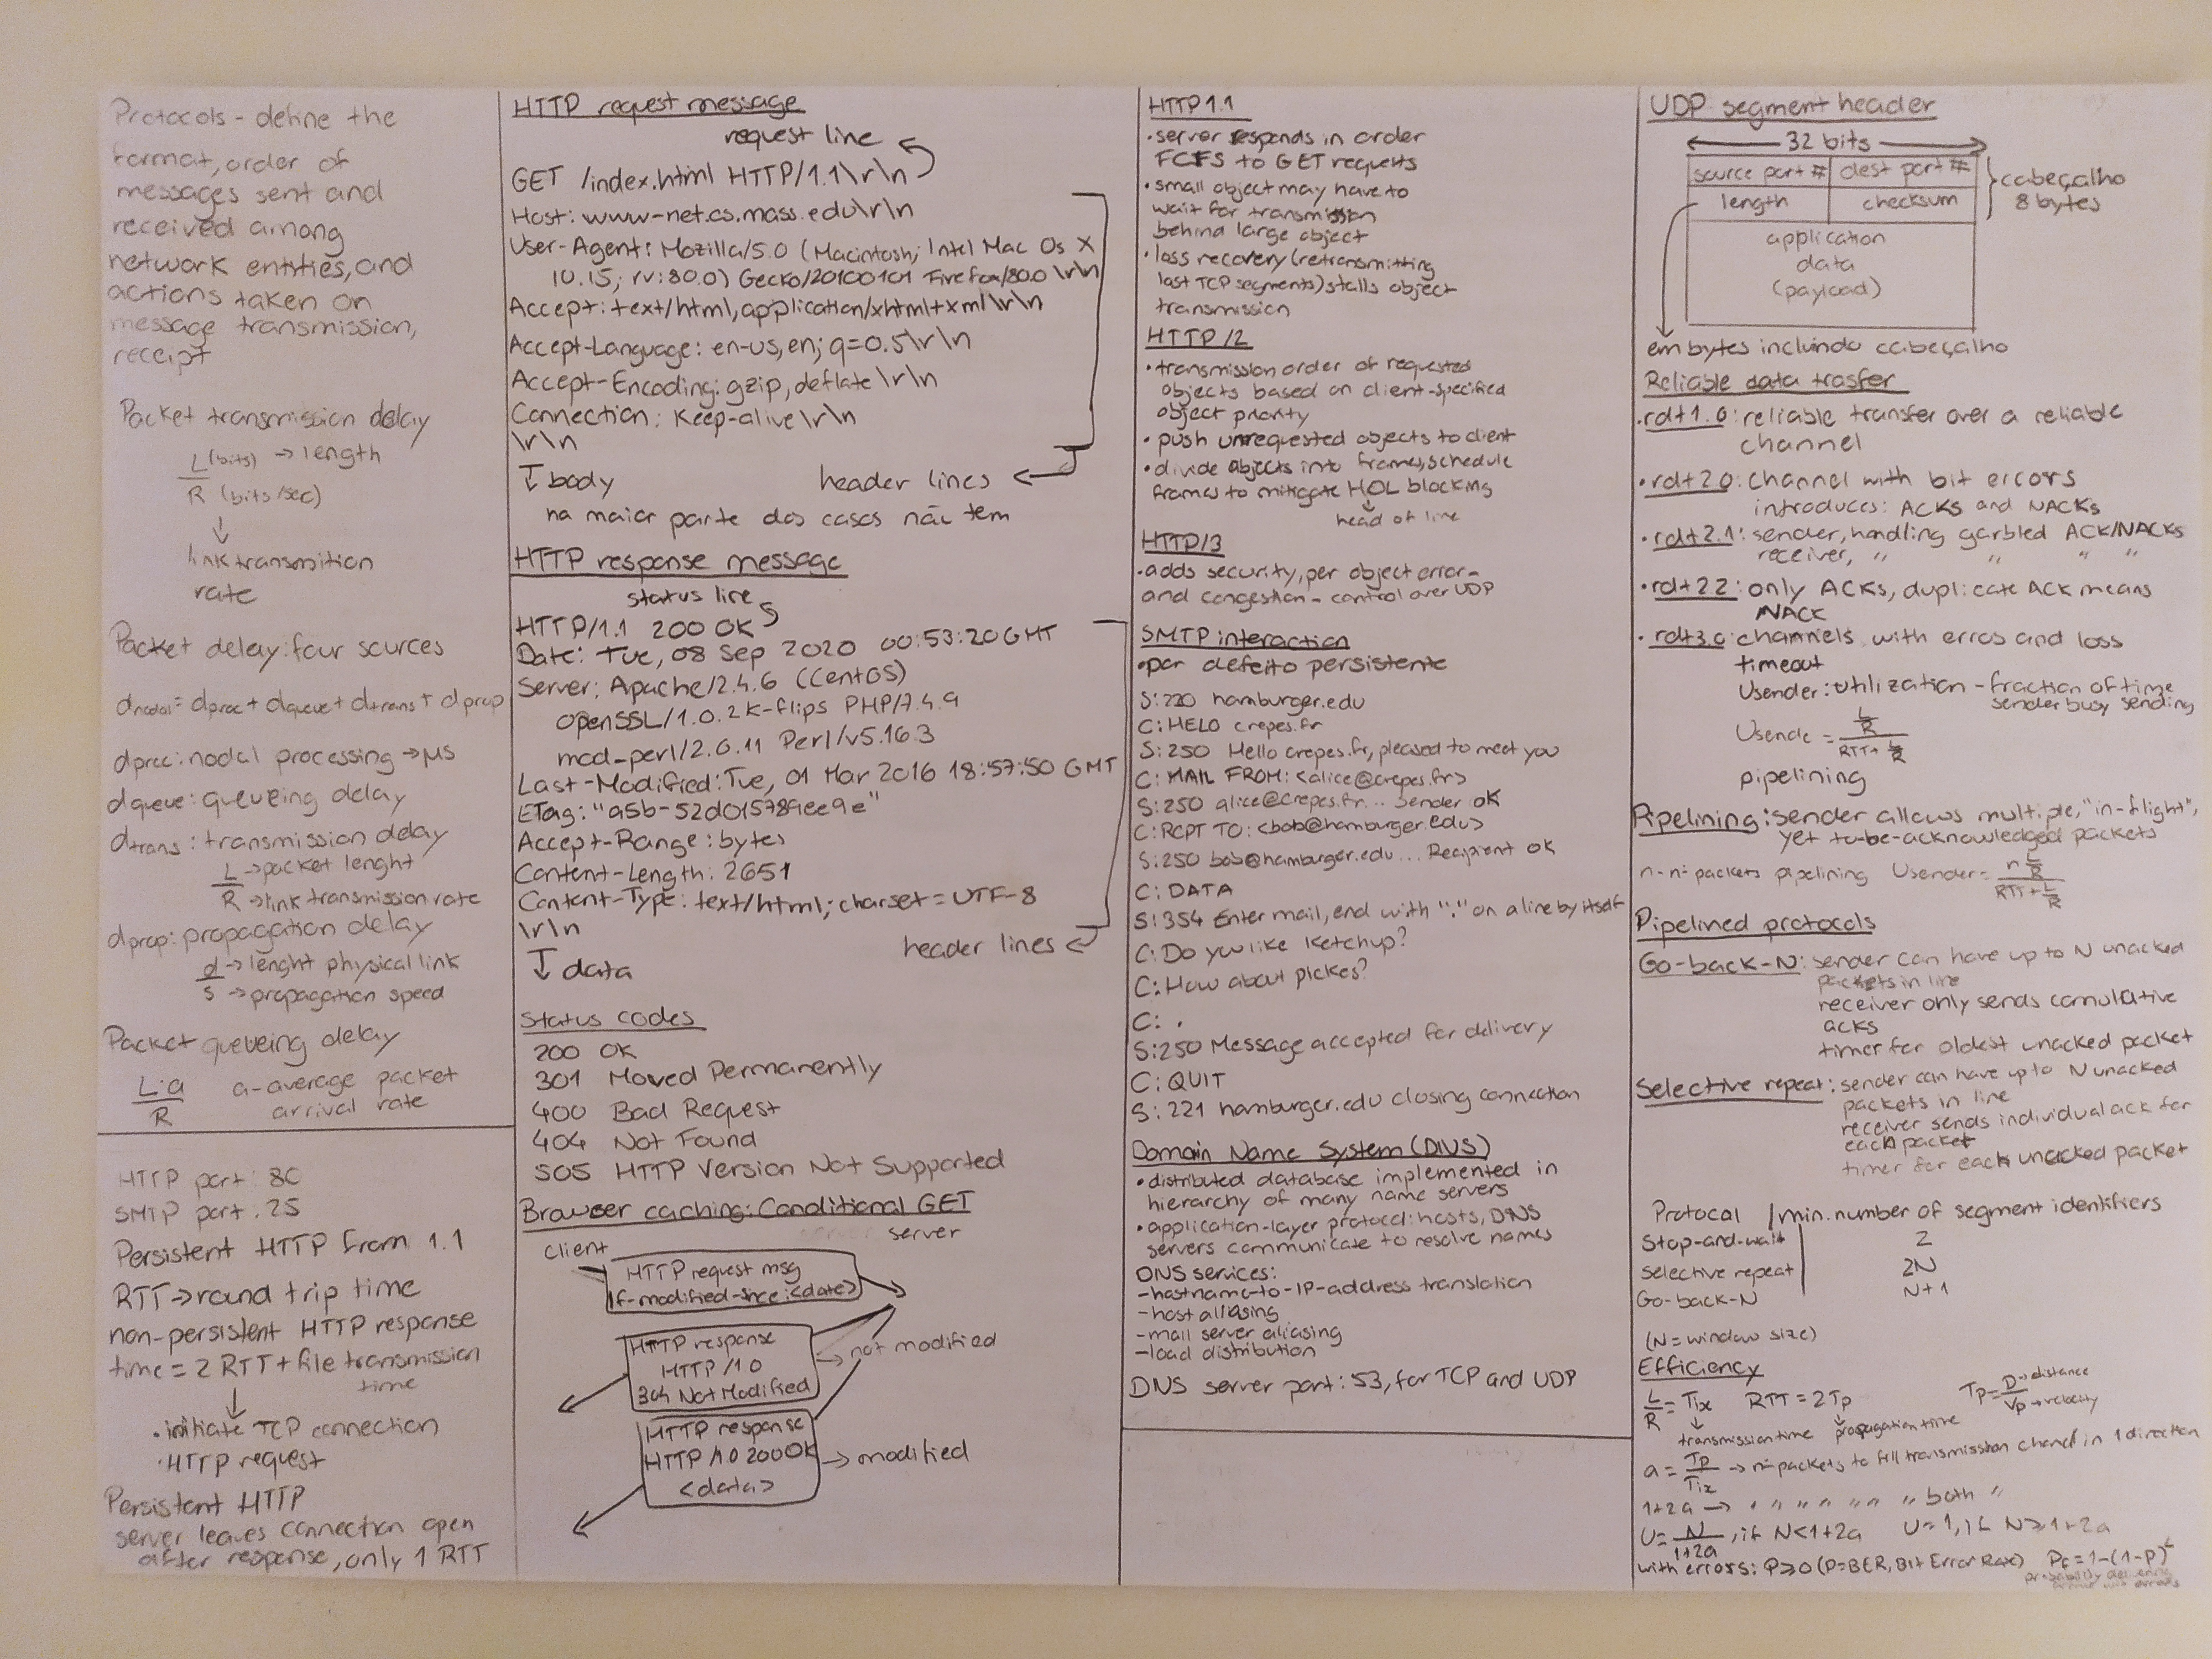 Protocols - define the
format, order of
messages sent and
received among
network entities, and
actions taken on
message transmission,
receipt
Packet transmission delay
L (bits) → length
R (bits/sec)
↓
link transmition
rate
Packet delay: four sources
dnodal = dproc + dqueue + dtrans + dprop
dproc: nodal processing → µs
dqueue: queueing delay
dtrans: transmission delay
L → packet lenght
R → link transmission rate
dprop: propagation delay
d → lenght physical link
s → propagation speed
Packet queueing delay
L.a a - average packet
R arrival rate
HTTP port: 80
SMTP port: 25
Persistent HTTP from 1.1
RTT → round trip time
non-persistent HTTP response
time = 2 RTT + file transmission
time
↓
• initiate TCP connection
• HTTP request
Persistent HTTP
server leaves connection open
after response, only 1 RTT
HTTP request message
request line
GET /index.html HTTP/1.1\r\n
Host: www-net.cs.mass.edu\r\n
User-Agent: Mozilla/5.0 (Macintosh; Intel Mac Os X
10.15; rv:80.0) Gecko/20100101 Firefox/80.0 \r\n
Accept: text/html, application/xhtml+xml\r\n
Accept-Language: en-us, en; q=0.5\r\n
Accept-Encoding: gzip, deflate \r\n
Connection: Keep-alive \r\n
\r\n
↓ body header lines
na maior parte dos casos não tem
HTTP response message
status line
HTTP/1.1 200 OK
Date: Tue, 08 Sep 2020 00:53:20 GMT
Server: Apache/2.4.6 (CentOS)
OpenSSL/1.0.2K-flips PHP/7.4.9
mod_perl/2.0.11 Perl/v5.16.3
Last-Modified: Tue, 01 Mar 2016 18:57:50 GMT
ETag: "a5b-52d015789ee9e"
Accept-Range: bytes
Content-Length: 2651
Content-Type: text/html; charset = UTF-8
\r\n
header lines
↓ data
Status codes
200 OK
301 Moved Permanently
400 Bad Request
404 Not Found
505 HTTP Version Not Supported
Browser caching: Conditional GET
client server
HTTP request msg
If-modified-since: <date>
HTTP response
HTTP /1.0
304 Not Modified
→ not modified
HTTP response
HTTP /1.0 200 OK
<data>
→ modified
HTTP 1.1
• server responds in order
FCFS to GET requests
• small object may have to
wait for transmission
behind large object
• loss recovery (retransmitting
last TCP segments) stalls object
transmission
HTTP /2
• transmission order of requested
objects based on client-specified
object priority
• push unrequested objects to client
• divide objects into frames, schedule
frames to mitigate HOL blocking
head of line
HTTP/3
• adds security, per object error-
and congestion-control over UDP
SMTP interaction
• por defeito persistente
S: 220 hamburger.edu
C: HELO crepes.fr
S: 250 Hello crepes.fr, pleased to meet you
C: MAIL FROM: <alice@crepes.fr>
S: 250 alice@crepes.fr... Sender ok
C: RCPT TO: <bob@hamburger.edu>
S: 250 bob@hamburger.edu... Recipient ok
C: DATA
S: 354 Enter mail, end with "." on a line by itself
C: Do you like Ketchup?
C: How about pickes?
C: .
S: 250 Message accepted for delivery
C: QUIT
S: 221 hamburger.edu closing connection
Domain Name System (DNS)
• distributed database implemented in
hierarchy of many name servers
• application-layer protocol: hosts, DNS
servers communicate to resolve names
DNS services:
- hostname-to-IP-address translation
- host aliasing
- mail server aliasing
- load distribution
DNS server port: 53, for TCP and UDP
UDP segment header
32 bits
source port # dest port #
length checksum
cabeçalho
8 bytes
application
data
(payload)
em bytes incluindo cabeçalho
Reliable data trasfer
• rdt1.0: reliable transfer over a reliable
channel
• rdt2.0: channel with bit errors
introduces: ACKs and NACKs
• rdt2.1: sender, handling garbled ACK/NACKs
receiver, " " " "
• rdt2.2: only ACKs, duplicate ACK means
NACK
• rdt3.0: channels with erros and loss
timeout
Usender: utilization - fraction of time
sender busy sending
Usende = L/R / RTT + L/R
pipelining
Pipelining: sender allows multiple, "in-flight",
yet to-be-acknowledged packets
n - nº packets pipelining Usender = n L/R / RTT + L/R
Pipelined protocols
Go-back-N: sender can have up to N unacked
packets in line
receiver only sends comulative
acks
timer for oldest unacked packet
Selective repeat: sender can have up to N unacked
packets in line
receiver sends individual ack for
each packet
timer for each unacked packet
Protocol / min. number of segment identifiers
Stop-and-wait 2
Selective repeat 2N
Go-back-N N+1
(N = window size)
Efficiency
L/R = Tix RTT = 2Tp Tp = D → distance
Vp → velocity
transmission time propagation time
a = Tp/Tix → nº packets to fill transmission channel in 1 direction
1+2a → " " " " " " both "
U = N/1+2a, if N < 1+2a U = 1, if N ≥ 1+2a
with errors: P ≥ 0 (P = BER, Bit Error Rate) Pe = 1-(1-p)^L
probability